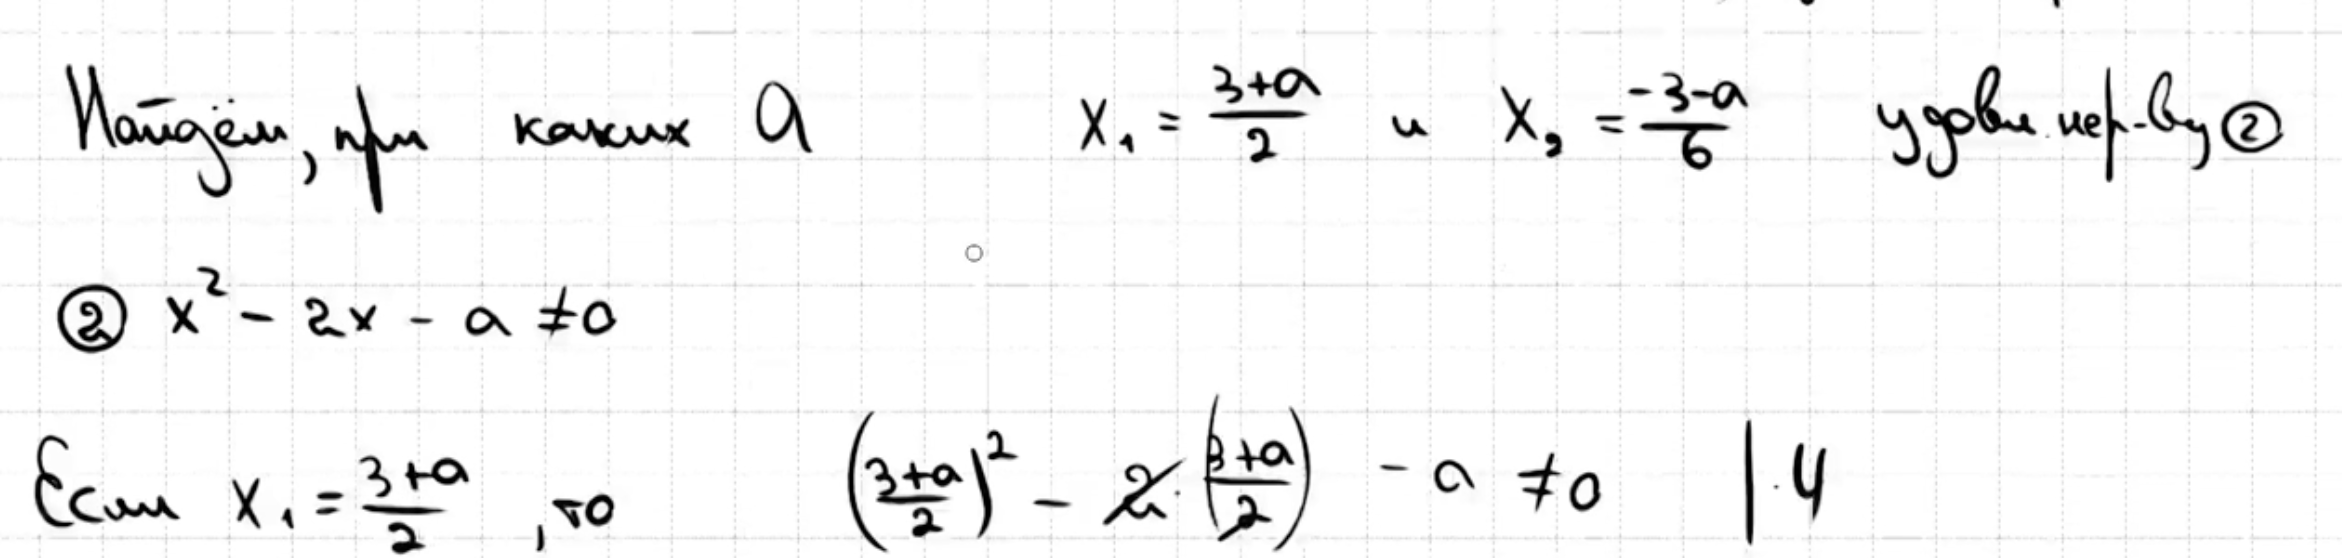 Найдём, при каких a x₁ = (3+a)/2 и x₂ = (-3-a)/6 удовл. нер-ву ②
② x² - 2x - a ≠ 0
Если x₁ = (3+a)/2, то ((3+a)/2)² - 2·((3+a)/2) - a ≠ 0 |·4